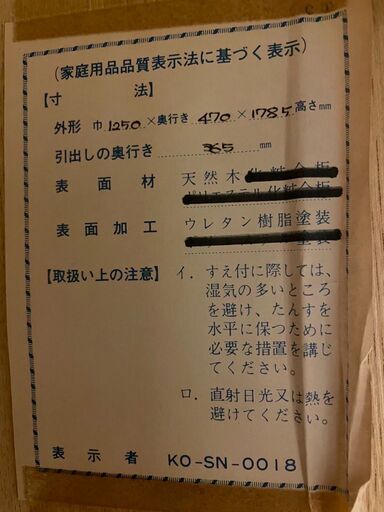 (家庭用品品質表示法に基づく表示)
【寸 法】
外形 巾1250×奥行き470×1785高さmm
引出しの奥行き 365mm
表面材 天然木化粧合板
ポリエステル化粧合板
表面加工 ウレタン樹脂塗装
塗装
【取扱い上の注意】 イ. すえ付に際しては、
湿気の多いところ
を避け、たんすを
水平に保つために
必要な措置を講じ
てください。
ロ. 直射日光又は熱を
避けてください。
表示者 KO-SN-0018